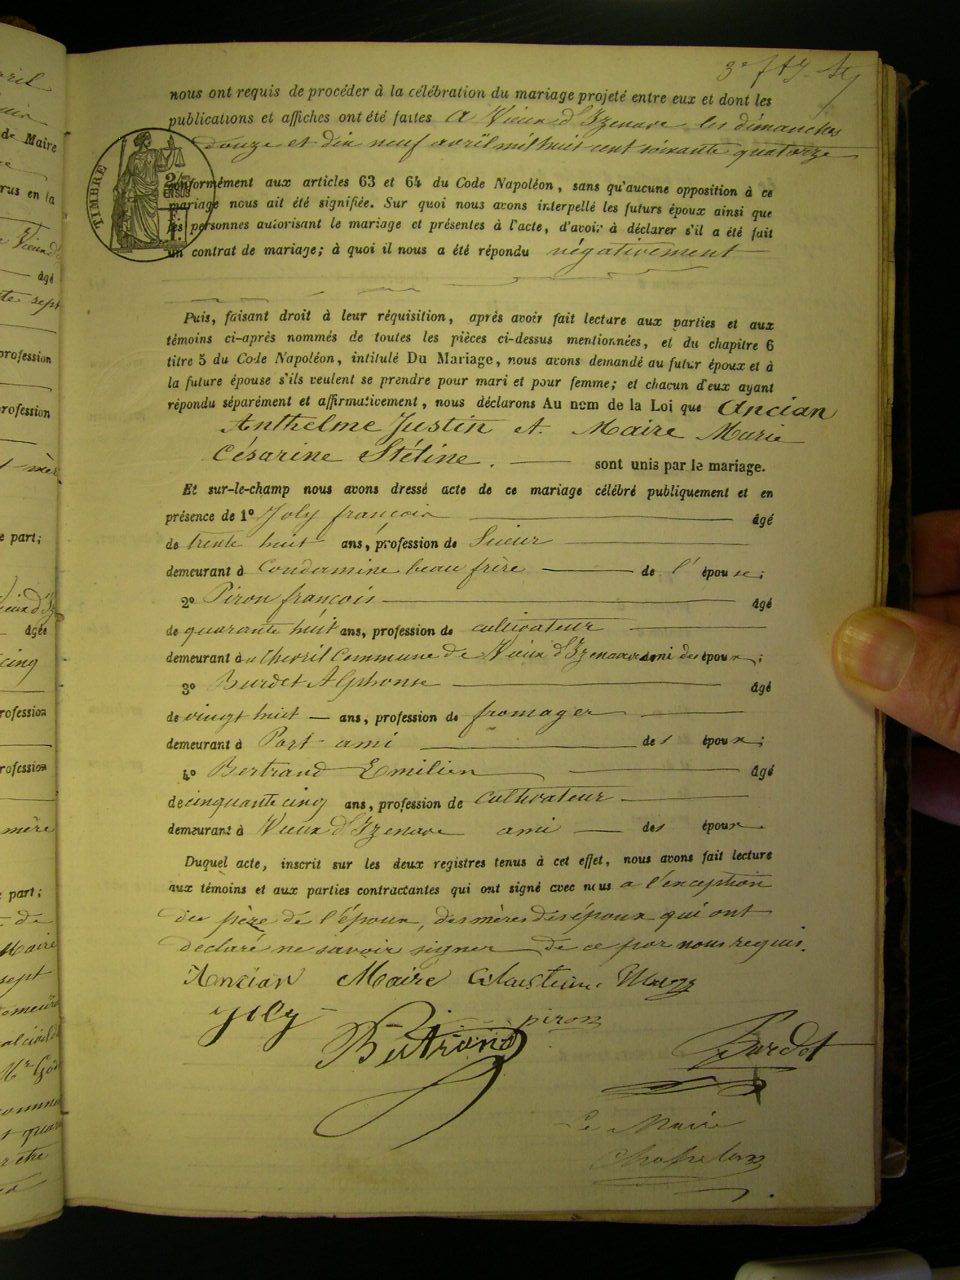 3e
nous ont requis de procéder à la célébration du mariage projeté entre eux et dont les
publications et affiches ont été faites à Vieux d'Izenave les dimanches
douze et dix neuf avril mil huit cent soixante quatorze
TIMBRE
conformément aux articles 63 et 64 du Code Napoléon, sans qu'aucune opposition à ce
mariage nous ait été signifiée. Sur quoi nous avons interpellé les futurs époux ainsi que
les personnes autorisant le mariage et présentes à l'acte, d'avoir à déclarer s'il a été fait
un contrat de mariage; à quoi il nous a été répondu négativement
Puis, faisant droit à leur réquisition, après avoir fait lecture aux parties et aux
témoins ci-après nommés de toutes les pièces ci-dessus mentionnées, et du chapitre 6
titre 5 du Code Napoléon, intitulé Du Mariage, nous avons demandé au futur époux et à
la future épouse s'ils veulent se prendre pour mari et pour femme; et chacun d'eux ayant
répondu séparément et affirmativement, nous déclarons Au nom de la Loi que Ancian
Anthelme Justin et Maire Marie
Césarine Stéline. sont unis par le mariage.
Et sur-le-champ nous avons dressé acte de ce mariage célébré publiquement et en
présence de 1º Joly françois âgé
de trente huit ans, profession de
demeurant à Condamine beau frère de l'épouse;
2º Piron françois âgé
de quarante huit ans, profession de cultivateur
demeurant à Commune de Vieux d'Izenave ami des époux;
3º Burdet Alphonse âgé
de vingt huit ans, profession de fromager
demeurant à Port ami des époux;
4º Bertrand Emilien âgé
de cinquante cinq ans, profession de cultivateur
demeurant à Vieux d'Izenave ami des époux
Duquel acte, inscrit sur les deux registres tenus à cet effet, nous avons fait lecture
aux témoins et aux parties contractantes qui ont signé avec nous à l'exception
du père de l'époux, des mères des époux qui ont
déclaré ne savoir signer de ce par nous requis.
Ancian Maire
Joly piron
Bertrand Burdet
Le Maire